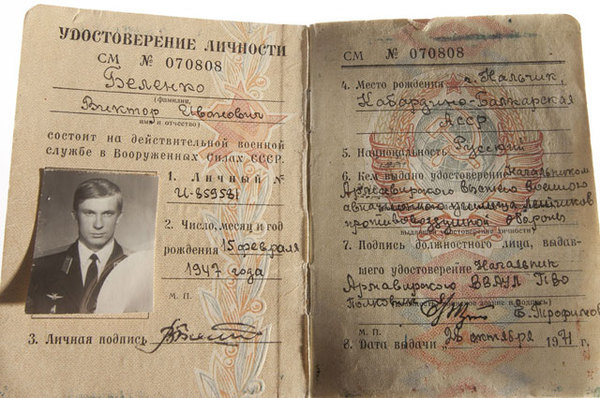 УДОСТОВЕРЕНИЕ ЛИЧНОСТИ
СМ № 070808
Беленко
(фамилия,
Виктор Иванович
имя и отчество)
состоит на действительной военной
службе в Вооруженных Силах СССР.
1. Личный №
И-859581
2. Число, месяц и год
рождения 15 февраля
1947 года
М. П.
3. Личная подпись
СМ № 070808
4. Место рождения г. Нальчик,
Кабардино-Балкарская
АССР
5. Национальность Русский
6. Кем выдано удостоверение Начальником
Армавирского высшего военного
авиационного училища летчиков
противовоздушной обороны
7. Подпись должностного лица, выдав-
шего удостоверение Начальник
Армавирского ВВАУЛ ПВО
Полковник Е. Трофимов
М. П.
8. Дата выдачи 26 октября 1971 г.